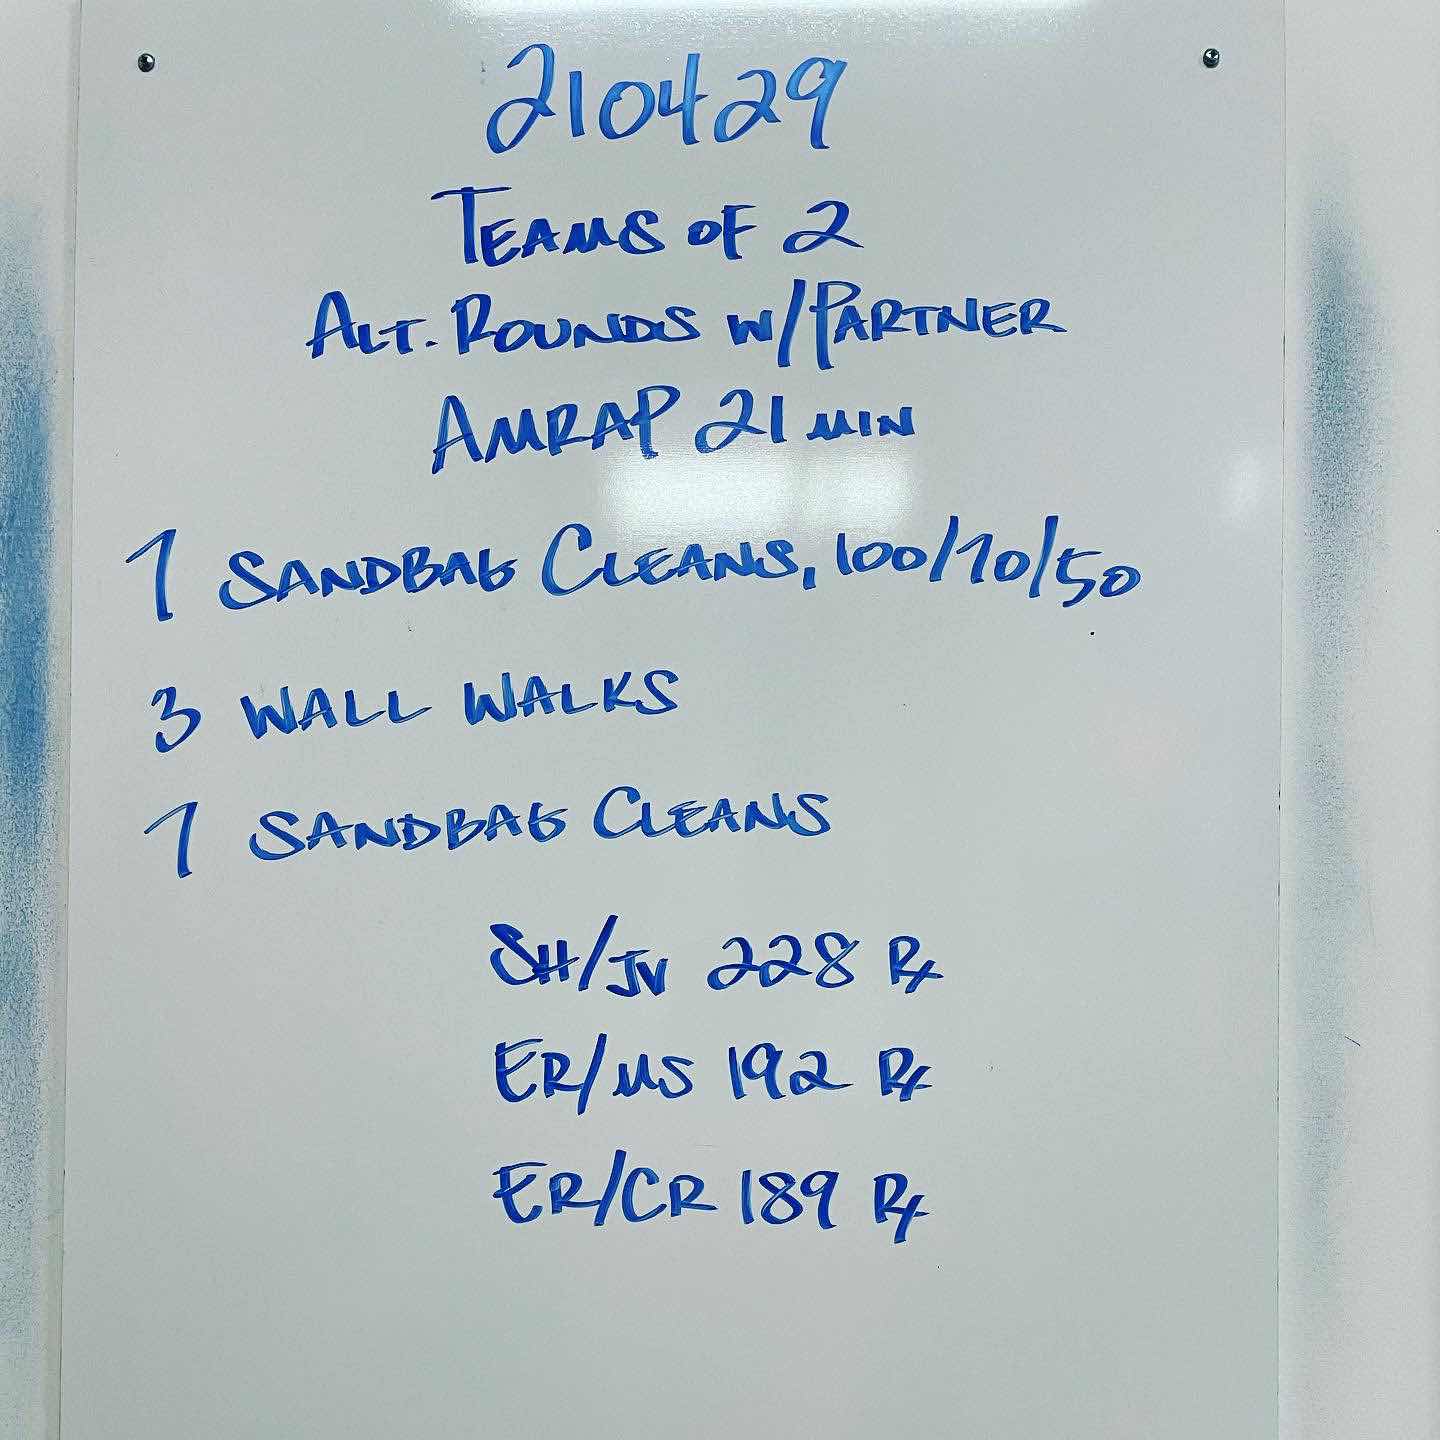 210429
TEAMS OF 2
ALT. ROUNDS W/PARTNER
AMRAP 21 MIN
7 SANDBAG CLEANS, 100/70/50
3 WALL WALKS
7 SANDBAG CLEANS
SH/JV 228 Rx
ER/MS 192 Rx
ER/CR 189 Rx